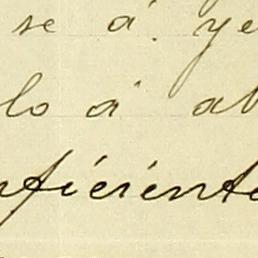 se á ye
lo á ab
nficiente